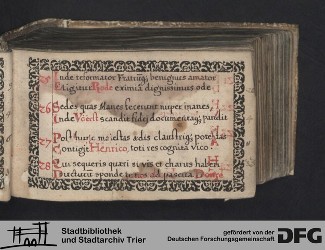 Inde reformator Fratrũq; benignus amator
Eligitur Rode eximia dignissimus ede
26 Sedes quas Manes fecerunt nuper inanes,
Inde Voerst scandit fidei documentaq; pandit
27 Post hunc maiestas ædis claustriq; potestas
Contigit Henrico, toti res cognita vico.
28 si vis et charus haberi
sponde ad pascua
Stadtbibliothek
und Stadtarchiv Trier
gefördert von der
Deutschen Forschungsgemeinschaft
DFG